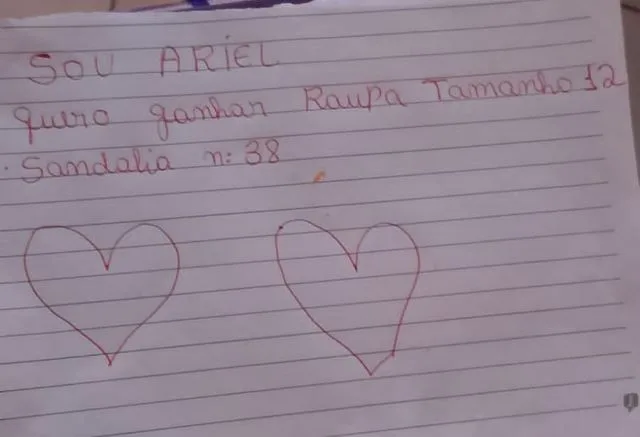 SOU ARIEL
quero ganhar Raupa Tamanho 12
. Sandalia n: 38